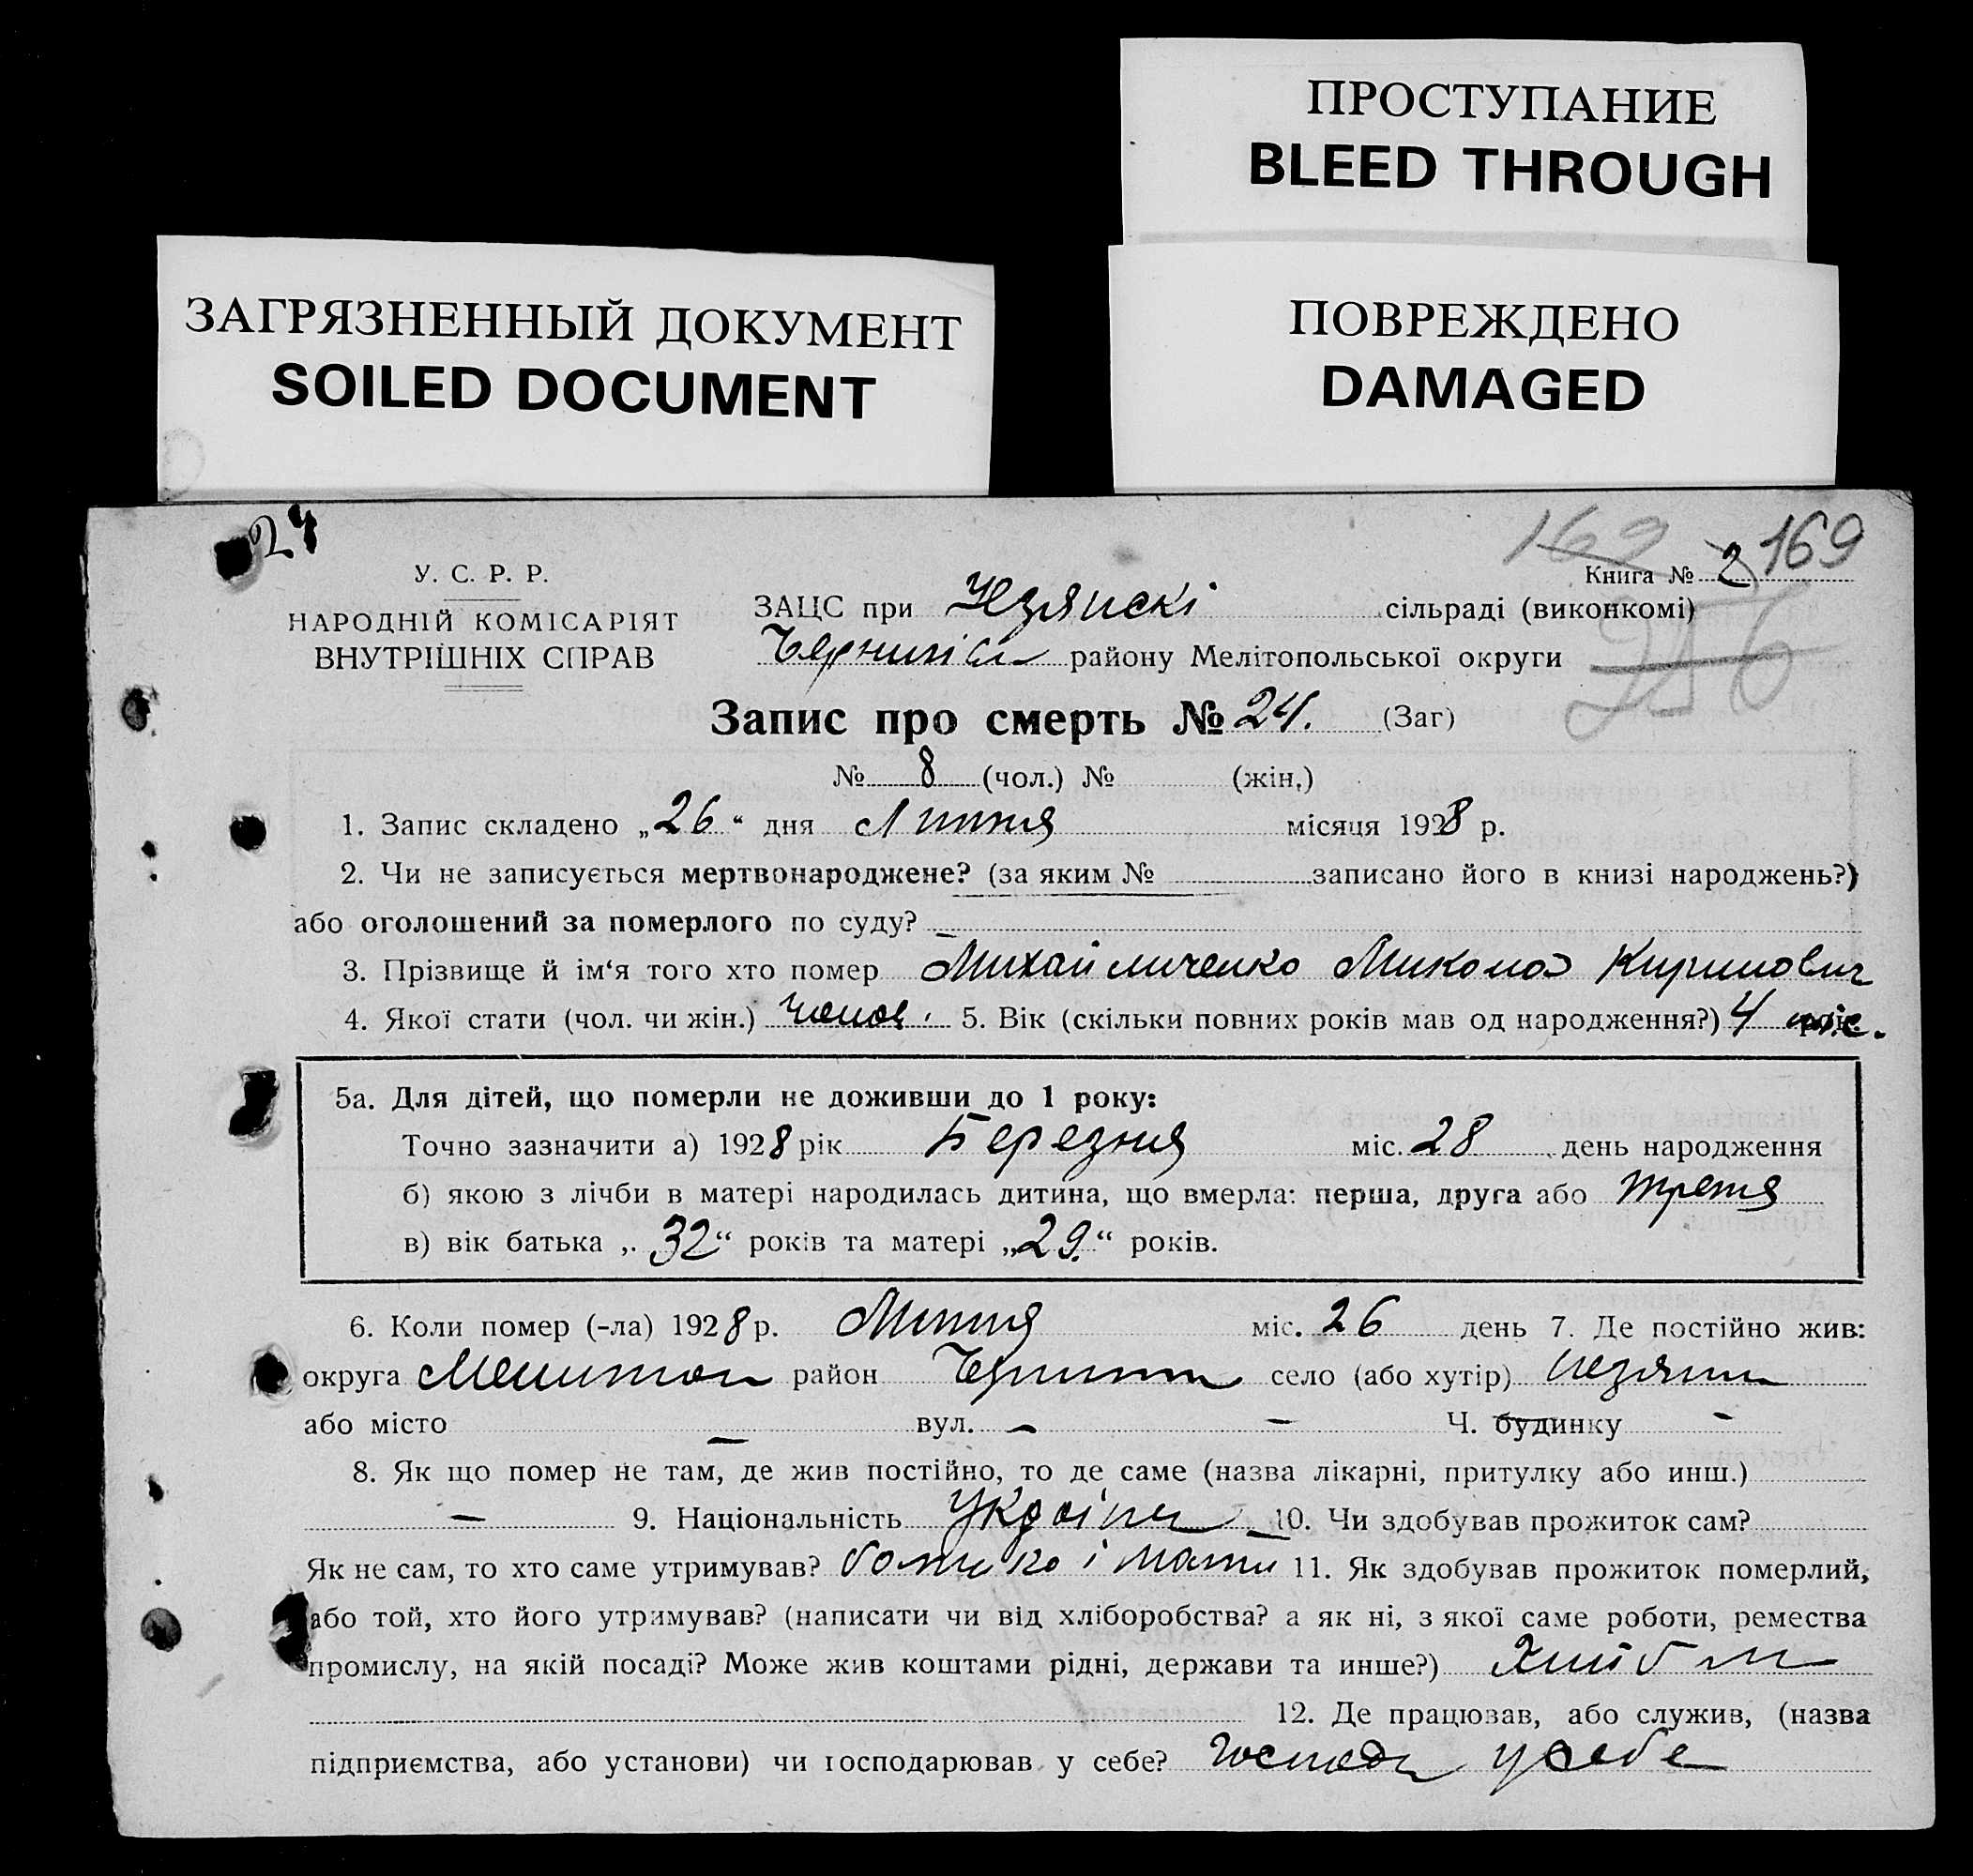 ПРОСТУПАНИЕ
BLEED THROUGH
ЗАГРЯЗНЕННЫЙ ДОКУМЕНТ
SOILED DOCUMENT
ПОВРЕЖДЕНО
DAMAGED
24
162 169
У. С. Р. Р.
НАРОДНІЙ КОМІСАРІЯТ
ВНУТРІШНІХ СПРАВ
Книга № 2
ЗАЦС при сільраді (виконкомі)
району Мелітопольської округи
256
Запис про смерть № 24. (Заг)
№ 8 (чол.) № (жін.)
1. Запис складено „26“ дня Липня місяця 1928 р.
2. Чи не записується мертвонароджене? (за яким № записано його в книзі народжень?)
або оголошений за померлого по суду? —
3. Прізвище й ім‘я того хто помер Михайличенко Микола Кирилович
4. Якої стати (чол. чи жін.) чолов. 5. Вік (скільки повних років мав од народження?) 4 міс.
5а. Для дітей, що померли не доживши до 1 року:
Точно зазначити а) 1928 рік Березня міс. 28 день народження
б) якою з лічби в матері народилась дитина, що вмерла: перша, друга або третя
в) вік батька „32“ років та матері „29.“ років.
6. Коли помер (-ла) 1928 р. Липня міс. 26 день 7. Де постійно жив:
округа Мелитоп район село (або хутір)
або місто — вул. — — Ч. будинку -
8. Як що помер не там, де жив постійно, то де саме (назва лікарні, притулку або инш.)
— 9. Національність Україн 10. Чи здобував прожиток сам?
Як не сам, то хто саме утримував? батько і мати 11. Як здобував прожиток померлий,
або той, хто його утримував? (написати чи від хліборобства? а як ні, з якої саме роботи, ремества
промислу, на якій посаді? Може жив коштами рідні, держави та инше?) Хліб
12. Де працював, або служив, (назва
підприємства, або установи) чи господарював у себе? Господ у себе